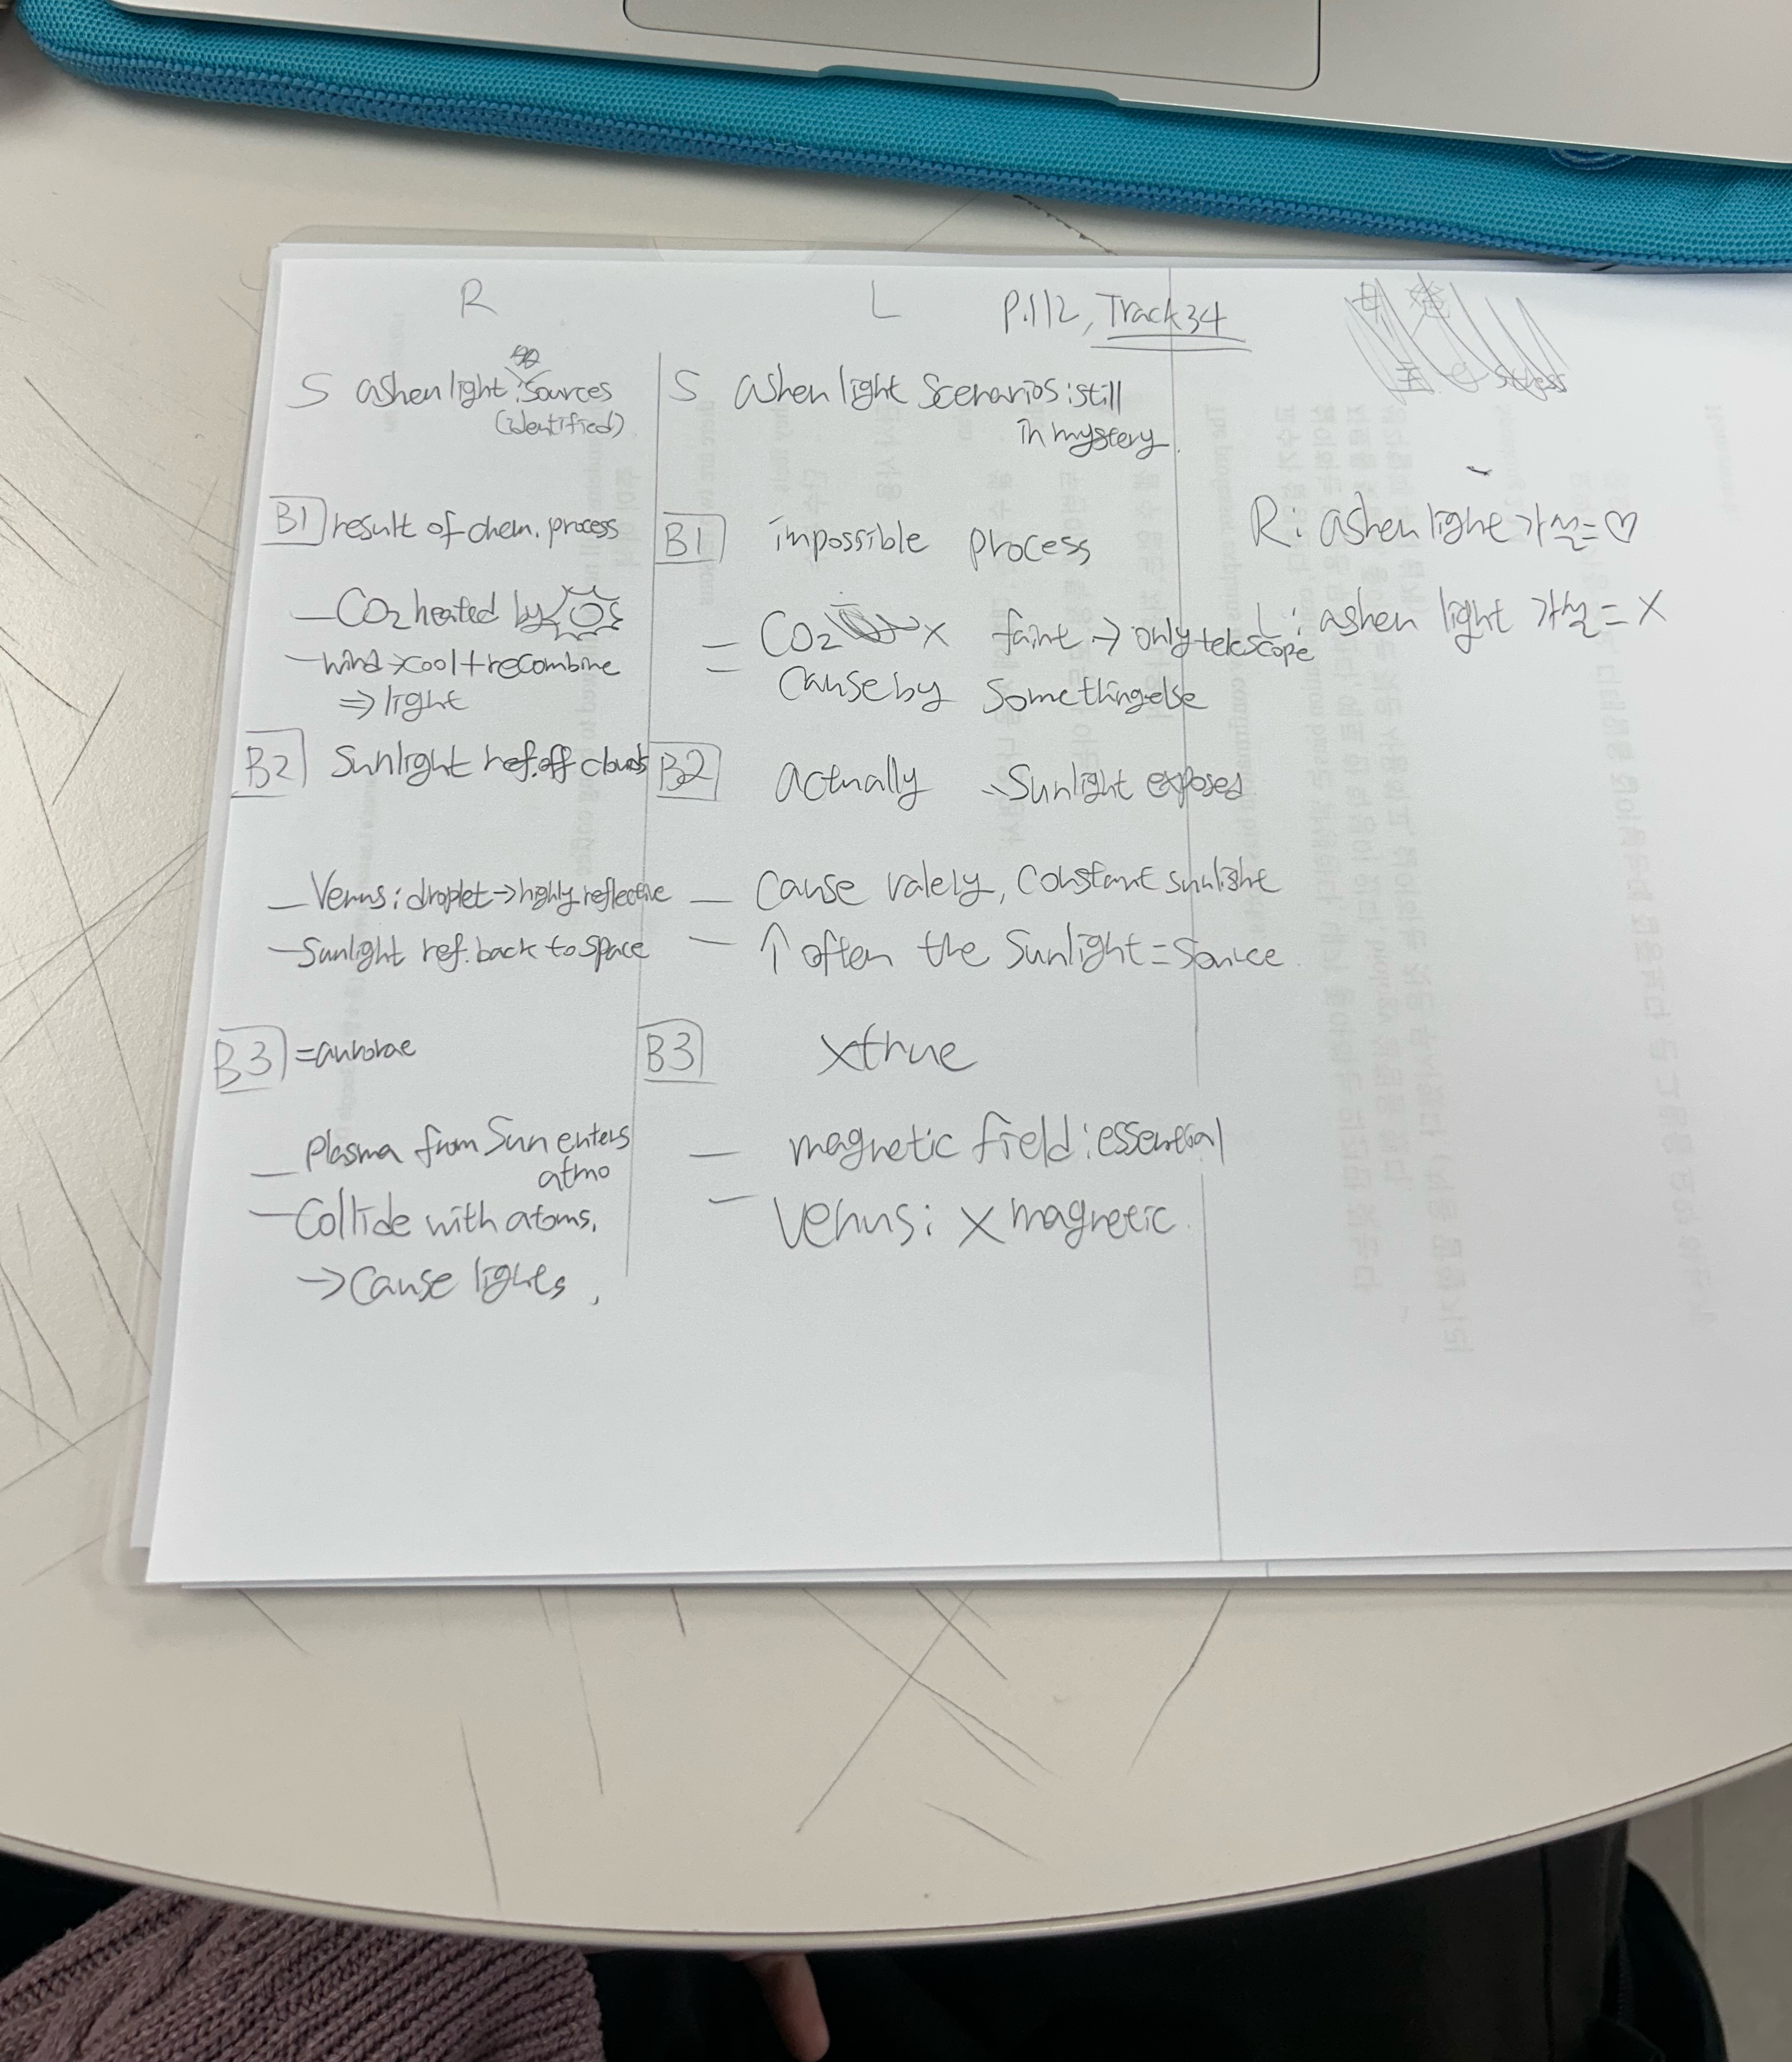 R
S ashen light : Sources
(identified)
B1 result of chem. process
- CO2 heated by
- wind → cool + recombine
⇒ light
B2 Sunlight ref. off clouds
- Venus : droplet → highly reflective
- Sunlight ref. back to space
B3 = aurorae
- Plasma from Sun enters
atmo
- Collide with atoms.
→ Cause lights,
L P.112, Track 34
S ashen light Scenarios : still
in mystery.
B1 impossible process
- CO2 x faint → only telescope
- Cause by Something else
B2 actually Sunlight exposed
- Cause ralely, Constant sunlight
- ↑ often the Sunlight = Source
B3 x true
- magnetic field : essential
- Venus : X magnetic.
R : ashen light 가설 = ♡
L : ashen light 가설 = X